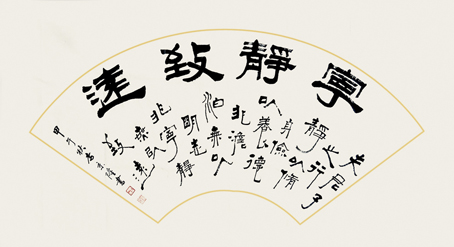 寧靜致遠
夫君子
之行靜
以脩身儉
以養德
非澹
泊無以
明志
非寧靜
無以
致遠